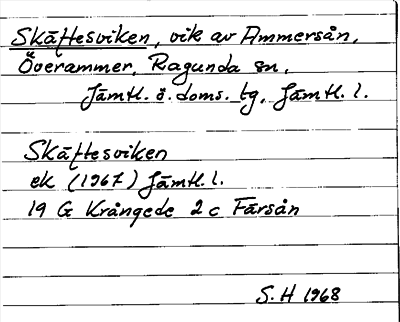 Skäftesviken, vik av Ammersån,
Överammer, Ragunda sn,
Jämtl. ö. doms. tg, Jämtl. l.
Skäftesviken
ek (1967) Jämtl. l.
19 G Krångede 2 c Färsån
S. H 1968